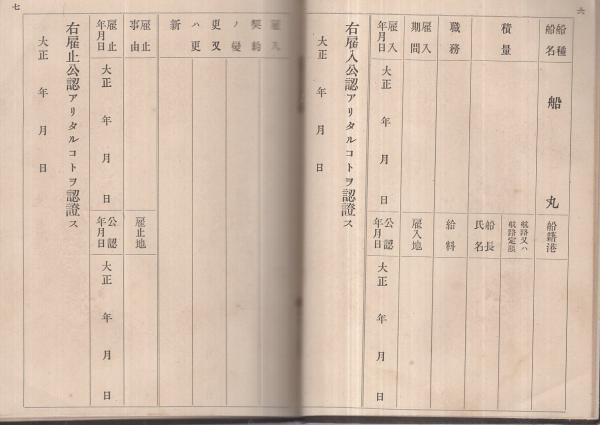 六
船種
船名
船
丸
船籍港
積量
航路又ハ
航路定限
職務
船長
氏名
雇入
期間
給料
雇入
年月日
大正 年 月 日
雇入地
公認
年月日
大正 年 月 日
右雇入公認アリタルコトヲ認證ス
大正 年 月 日
七
雇入
契約
ノ變
更又
ハ更
新
雇止
事由
雇止地
雇止
年月日
大正 年 月 日
公認
年月日
大正 年 月 日
右雇止公認アリタルコトヲ認證ス
大正 年 月 日